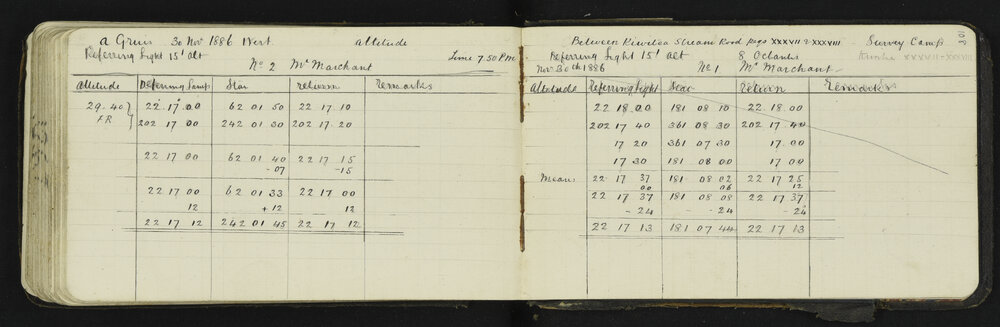 a Gruis 30 Nov 1886 West altitude
Referring Light 15' alt Time 7.50 P.M
No 2 Mr Marchant
altitude Referring Lamp Star return Remarks
29.40 22 17 00 62 01 50 22 17 10
F R 202 17 00 242 01 30 202 17 20
22 17 00 62 01 40 22 17 15
-07 -15
22 17 00 62 01 33 22 17 00
12 +12 12
22 17 12 242 01 45 22 17 12
Between Kiwitea Stream Road pegs XXXVII & XXXVIII Survey Camp
301
Referring Light 15' alt 8 Octantis XXXVII-XXXVIII
Nov 30th 1886 No 1 Mr Marchant
Altitude Referring Light Star Return Remarks
22 18 00 181 08 10 22 18 00
202 17 40 361 08 30 202 17 40
17 20 361 07 30 17 00
17 30 181 08 00 17 00
Means 22 17 37 181 08 02 22 17 25
00 06 12
22 17 37 181 08 08 22 17 37
-24 -24 -24
22 17 13 181 07 44 22 17 13